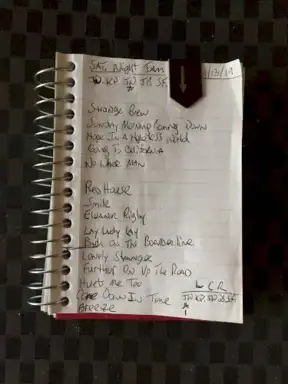 SAT. Night Jam
JD. KP. JN JB SF
Strange Brew
Sunday Morning Coming Down
Hope In A Hopeless World
Going To California
No Where Man
Red House
Smile
Eleanor Rigby
Lay Lady Lay
Back On The Borderline
Lonely Stranger
Further On Up The Road
Hurts Me Too
Come Down In Time
Breeze
L C R